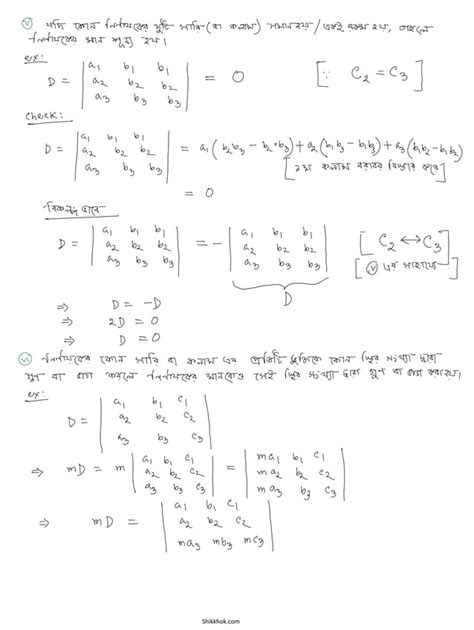 ⓥ যদি কোন নির্ণায়কের দুটি সারি (বা কলাম) সমান হয় / একই রকম হয়, তাহলে
নির্ণায়কের মান শূন্য হয়।
ex:
D = | a₁ b₁ b₁ | = 0 [∵ C₂ = C₃]
| a₂ b₂ b₂ |
| a₃ b₃ b₃ |
check:
D = | a₁ b₁ b₁ | = a₁(b₂b₃ − b₂b₃) + a₂(b₁b₃ − b₁b₃) + a₃(b₁b₂ − b₁b₂)
| a₂ b₂ b₂ | [১ম কলাম বরাবর বিস্তার করে]
| a₃ b₃ b₃ |
= 0
বিকল্প ভাবে
D = | a₁ b₁ b₁ | = − | a₁ b₁ b₁ | [C₂ ↔ C₃]
| a₂ b₂ b₂ | | a₂ b₂ b₂ | [ⓥ এর সাহায্যে]
| a₃ b₃ b₃ | | a₃ b₃ b₃ |
D
⇒ D = −D
⇒ 2D = 0
⇒ D = 0
ⓥⁱ নির্ণায়কের কোন সারি বা কলাম এর প্রতিটি ভুক্তিকে কোন স্থির সংখ্যা দ্বারা
গুণ বা ভাগ করলে নির্ণায়কের মানকেও সেই স্থির সংখ্যা দ্বারা গুণ বা ভাগ করা হয়।
ex:
D = | a₁ b₁ c₁ |
| a₂ b₂ c₂ |
| a₃ b₃ c₃ |
⇒ mD = m | a₁ b₁ c₁ | = | ma₁ b₁ c₁ |
| a₂ b₂ c₂ | | ma₂ b₂ c₂ |
| a₃ b₃ c₃ | | ma₃ b₃ c₃ |
⇒ mD = | a₁ b₁ c₁ |
| a₂ b₂ c₂ |
| ma₃ mb₃ mc₃ |
Shikkhok.com